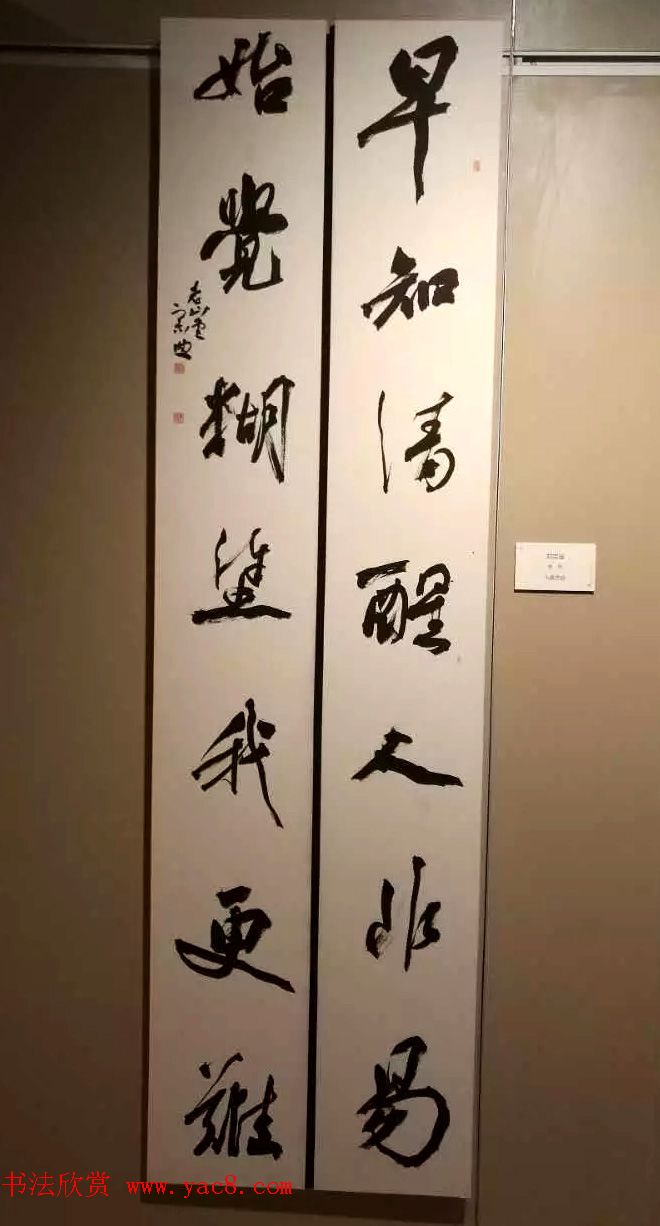 早知清醒人非易
始覺糊塗我更難
书法欣赏 www.yac8.com